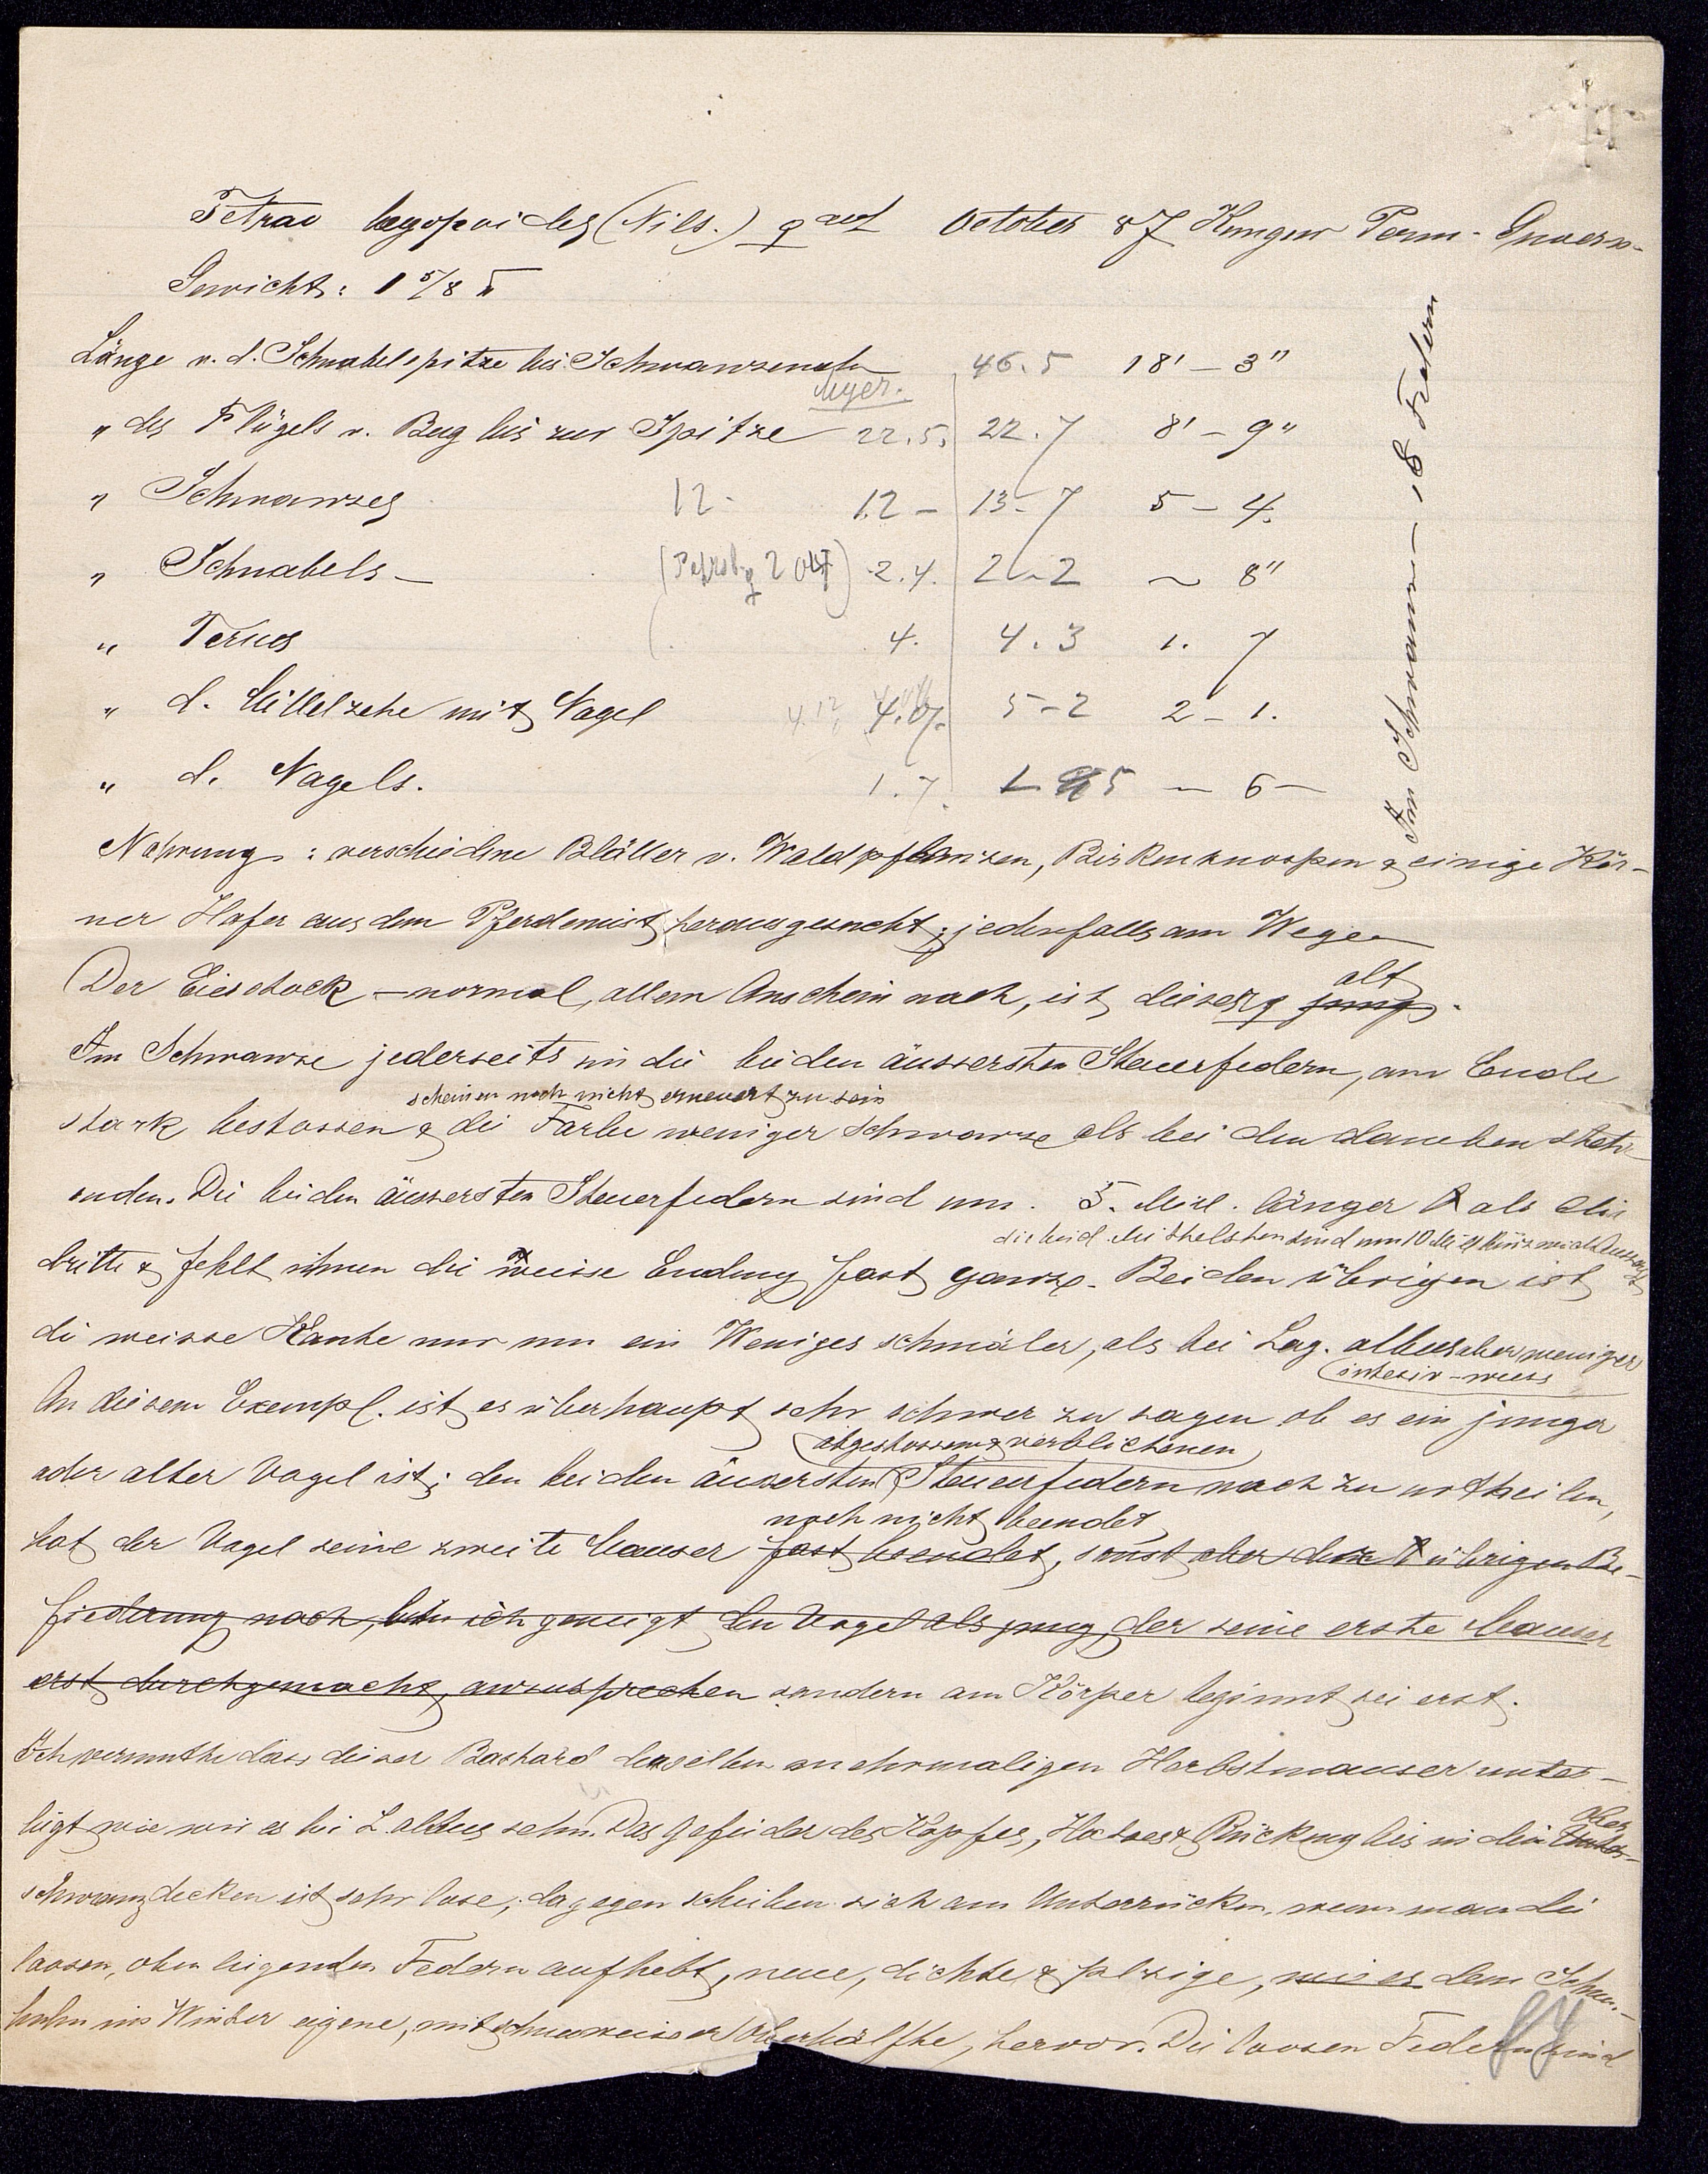 Tetrao lagopoides (Nils.) ♀ ad October 87 Kungur Perm. Guvern.
Gewicht: 1 5/8 ℔
Länge v. d. Schnabelspitze bis Schwanzende 46.5 18' – 3"
Meyer.
" des Flügels v. Bug bis zur Spitze 22.5. 22.7 8' – 9"
" Schwanzes 12. 12 – 13 – 7 5 – 4.
" Schnabels – 2.4. 2 – 2 ~ 8"
" Tersus 4. 4.3 1. 7
" d. Mittelzehe mit Nagel 5 – 2 2 – 1.
" d. Nagels. 1.7. 5 – 6 –
Im Schwanze – 18 Federn
Nahrung: verschiedne Blätter v. Waldpflanzen, Birkenknospen & einige Kör-
ner Hafer aus dem Pferdemist herausgesucht; jedenfalls am Wege
alt
Der Eierstock – normal, allem Anschein nach, ist dieser ♀ jung.
Im Schwanze jederseits sin die beiden äussersten Steuerfedern, am Ende
scheinen noch nicht erneuert zu sein
stark bestossen & die Farbe weniger schwarze als bei den daneben steh-
enden. Die beiden äussersten Steuerfedern sind um 5. Mill. länger als die
die beid. Mittelsten sind um 10 Mill
dritte & fehlt ihnen die weisse Endung fast ganz. Bei den übrigen ist
die weisse Kante nur um ein Weniges schmäler, als bei Lag. albus aber weniger
intesiv-weiss
An diesem Exempl. ist es überhaupt sehr schwer zu sagen ob es ein junger
abgestossenen & verblichenen
oder alter Vogel ist; den beiden äussersten Steuerfedern nach zu urtheilen,
noch nicht beendet
hat der Vogel seine zweite Mauser fast beendet, sonst aber der übrigen Be-
fiederung nach, bin ich geneigt den Vogel als jung, der seine erste Mauser
erst durchgemacht, anzusprechen sondern am Körper beginnt sei erst.
Ich vermuthe dass dieser Bastard derselben mehrmaligen Herbstmauser unter-
ober
ligt wie wir es bei L. albus sehn. Das Gefieder des Kopfes, Halses & Rückens bis in die Unter-
schwanzdecken ist sehr lose, dagegen scheiben sich am Unterrücken, wenn man die
loosen, oben liegenden Federn aufhebt, neue, dichte & plzige, wie es dem Schnee-
huhn im Winter eigene, mit schneeweisser Oberhälfte, hervor. Die loosen Federn sind